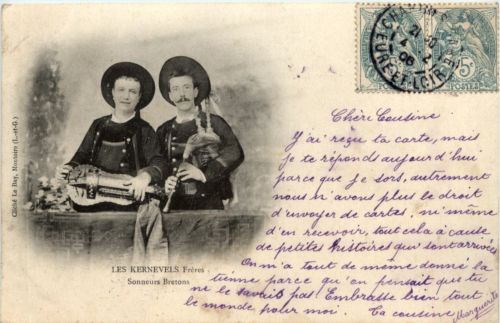 5c
POSTES
POSTES
EURE-ET-LOIR
Cliché Le Bay, Montoire (L.-et-C.)
LES KERNEVELS Frères
Sonneurs Bretons
Chère Cousine
J'ai reçu ta carte, mais
je te réponds aujourd'hui
parce que je sors, autrement
nous n'avons plus le droit
d'envoyer de cartes, ni même
d'en recevoir, tout cela à cause
de petites histoires qui sont arrivées
On m'a tout de même donné la
tienne parce qu'on pensait que tu
ne le savais pas! Embrasse bien tout
le monde pour moi. Ta cousine Marguerite